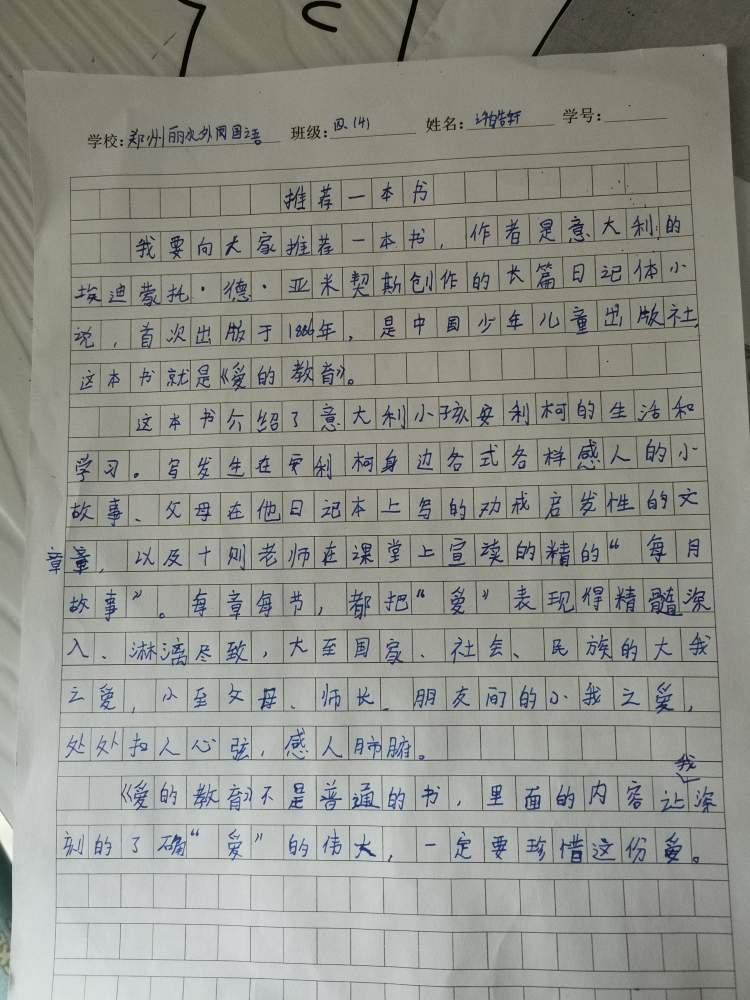 学校: 郑州丽水外国语 班级: 四、(4) 姓名: 学号:
推荐一本书
我要向大家推荐一本书，作者是意大利的
埃迪蒙托·德·亚米契斯创作的长篇日记体小
说，首次出版于1886年，是中国少年儿童出版社，
这本书就是《爱的教育》。
这本书介绍了意大利小孩安利柯的生活和
学习。写发生在安利柯身边各式各样感人的小
故事、父母在他日记本上写的劝戒启发性的文
章，以及十则老师在课堂上宣读的精的“每月
故事”。每章每节，都把“爱”表现得精髓深
入、淋漓尽致，大至国家、社会、民族的大我
之爱，小至父母、师长、朋友间的小我之爱，
处处扣人心弦，感人肺腑。
《爱的教育》不是普通的书，里面的内容让我深
刻的了确“爱”的伟大，一定要珍惜这份爱。